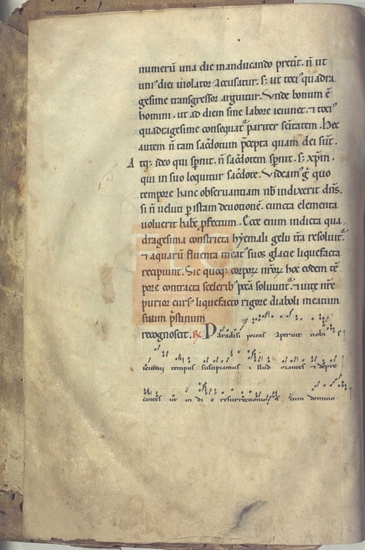 numerũ una die manducando pret̃it. ñ ut
uni᷒ diei uiolator accusatur. s; ut toci᷒ quadra
gesime transgressor arguitur. Vnde bonum ẽ
homini. ut ad diem sine labore ieiunet. & toci᷒
quadragesime consequat᷑ pariter sc̃itatem. Hec
autem ñ tam sacerdotum p̃cepta quam dei sũt.
Atq; ideo qui sp̃nit. ñ sacerdotem sp̃nit. s; xp̃m.
qui in suo loquitur sacerdote. Videam᷒ g̊ quo
tempore hanc obseruantiam nob̃ indixerit dñs.
si ñ ueluti p̱ istam deuotionẽ. cuncta elementa
uoluerit hab̃e p̱fectum. Ecce enim indicta qua
dragesima constricta hyemali gelu t̃ra resoluit᷑.
& aquarũ fluenta meat᷒ suos glacie liquefacta
recipiunt. Sic quoq; corporũ nr̃orũ hoc eodem tẽ
pore contracta sceleriƀ peccata soluunt᷑. & uite nr̃e
purior curs᷒ liquefacto rigore diaboli meatum
suum p̃stinum
recognoscit. R̷ Paradisi portas aperuit nobis
ieiunii tempus suscipiamus illud orantes & depre
cantes ut in di e resurrectionis cum domino